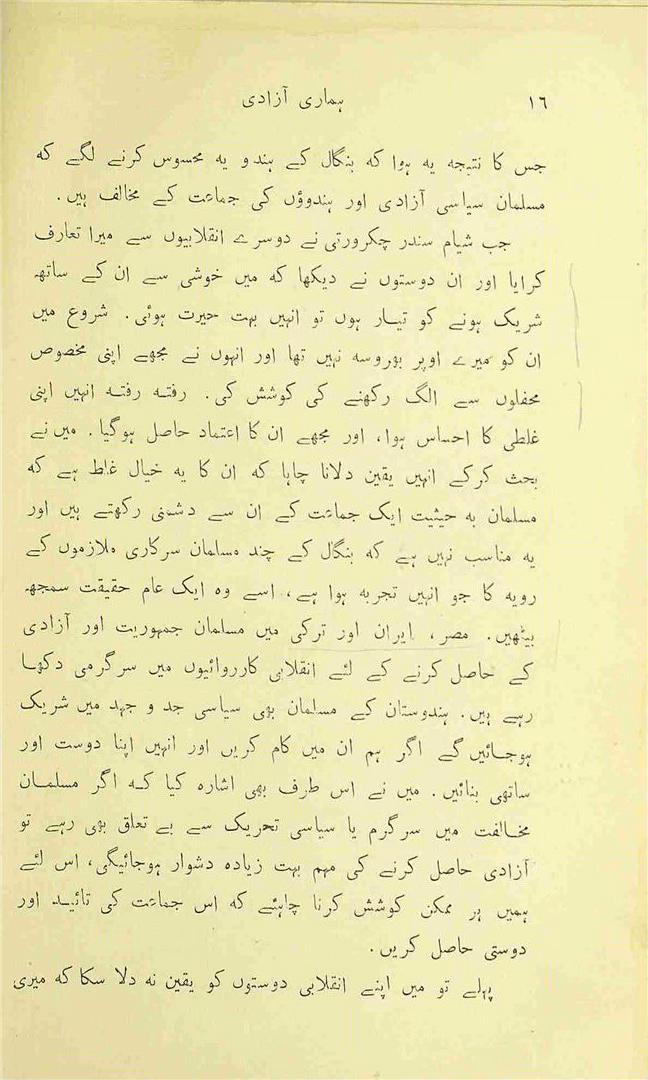 ١٦ ہماری آزادی
جس کا نتیجہ یہ ہوا کہ بنگال کے ہندو یہ محسوس کرنے لگے کہ
مسلمان سیاسی آزادی اور ہندوؤں کی جماعت کے مخالف ہیں.
جب شیام سندر چکرورتی نے دوسرے انقلابیوں سے میرا تعارف
کرایا اور ان دوستوں نے دیکھا کہ میں خوشی سے ان کے ساتھ
شریک ہونے کو تیار ہوں تو انہیں بہت حیرت ہوئی. شروع میں
ان کو میرے اوپر بھروسہ نہیں تھا اور انہوں نے مجھے اپنی مخصوص
محفلوں سے الگ رکھنے کی کوشش کی. رفتہ رفتہ انہیں اپنی
غلطی کا احساس ہوا، اور مجھے ان کا اعتماد حاصل ہوگیا. میں نے
بحث کرکے انہیں یقین دلانا چاہا کہ ان کا یہ خیال غلط ہے کہ
مسلمان بہ حیثیت ایک جماعت کے ان سے دشمنی رکھتے ہیں اور
یہ مناسب نہیں ہے کہ بنگال کے چند مسلمان سرکاری ملازموں کے
رویہ کا جو انہیں تجربہ ہوا ہے، اسے وہ ایک عام حقیقت سمجھ
بیٹھیں. مصر، ایران اور ترکی میں مسلمان جمہوریت اور آزادی
کے حاصل کرنے کے لئے انقلابی کارروائیوں میں سرگرمی دکھا
رہے ہیں. ہندوستان کے مسلمان بھی سیاسی جد و جہد میں شریک
ہوجائیں گے اگر ہم ان میں کام کریں اور انہیں اپنا دوست اور
ساتھی بنائیں. میں نے اس طرف بھی اشارہ کیا کہ اگر مسلمان
مخالفت میں سرگرم یا سیاسی تحریک سے بے تعلق بھی رہے تو
آزادی حاصل کرنے کی مہم بہت زیادہ دشوار ہوجائیگی، اس لئے
ہمیں ہر ممکن کوشش کرنا چاہئے کہ اس جماعت کی تائید اور
دوستی حاصل کریں.
پہلے تو میں اپنے انقلابی دوستوں کو یقین نہ دلا سکا کہ میری